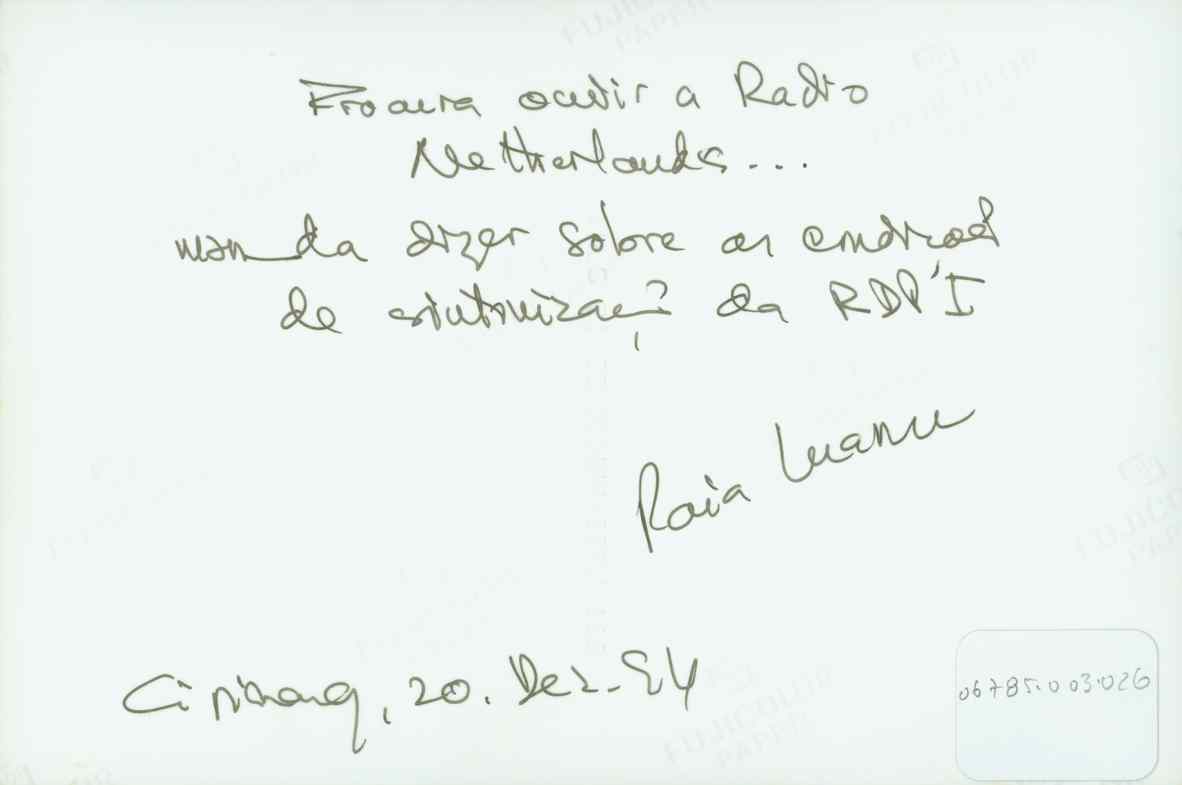 Procura ouvir a Radio
Netherlands...
manda dizer sobre as condições
de sintonização da RDP'I
Cipinang, 20. Dez. 94
06785.003.026
FUJICOLOR
PAPER